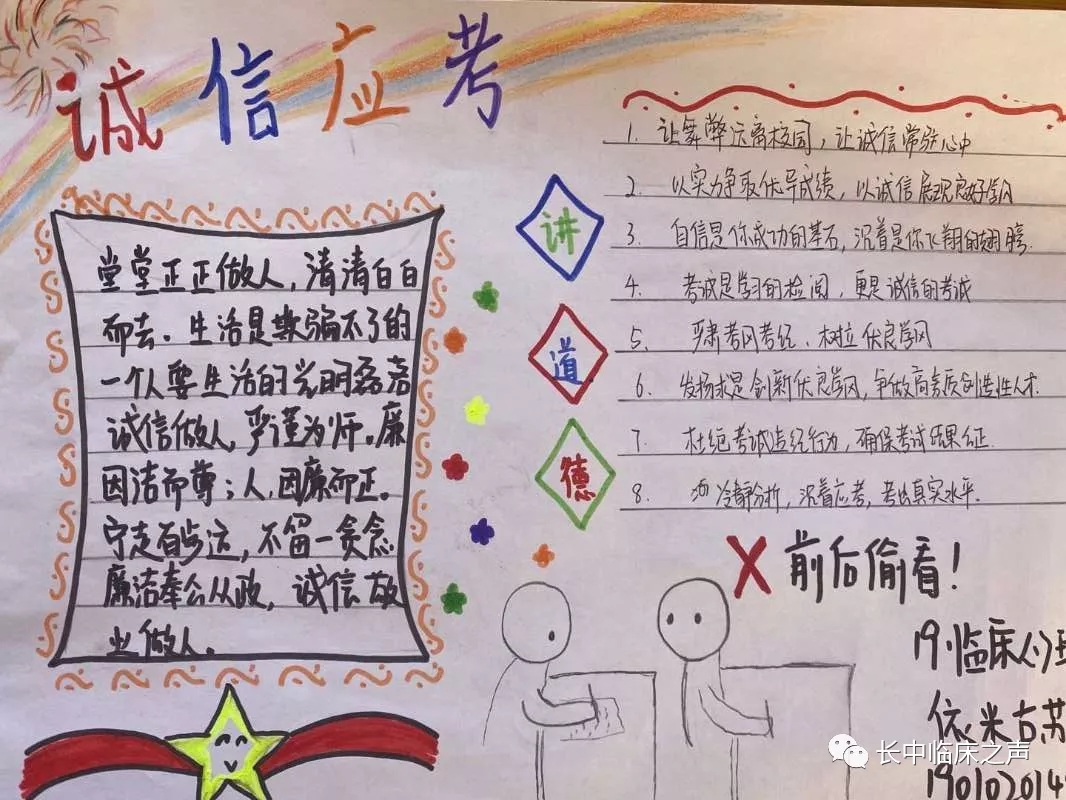 诚信应考
堂堂正正做人，清清白白
而去。生活是欺骗不了的
一个人要生活的光明磊落
诚信做人，严谨为师。廉
因洁而尊；人，因廉而正。
宁走百步远，不留一贪念
廉洁奉公从政，诚信敬
业做人。
讲
道
德
1. 让舞弊远离校园，让诚信常驻心中
2. 以实力争取优异成绩，以诚信展现良好学风
3. 自信是你成功的基石，沉着是你飞翔的翅膀.
4. 考诚是学习的检阅，更是诚信的考试
5. 严肃考风考纪、树立优良学风
6. 发扬求是创新优良学风，争做高素质创造性人才.
7. 杜绝考诚违纪行为，确保考试结果公正.
8. 冷静分析，沉着应考，考出真实水平.
X 前后偷看！
19临床
依米古苏
19010201
长中临床之声